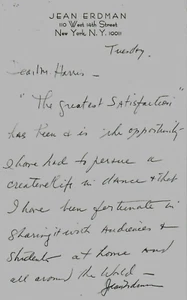 JEAN ERDMAN
110 West 14th Street
New York, N.Y. 10011
Tuesday.
Dear Mr Harris –
"The Greatest Satisfaction"
has been is the opportunity
I have had to pursue a
creative life in dance & that
I have been fortunate in
sharing it with Audiences &
Students at home and
all around the World –
Jean Erdman